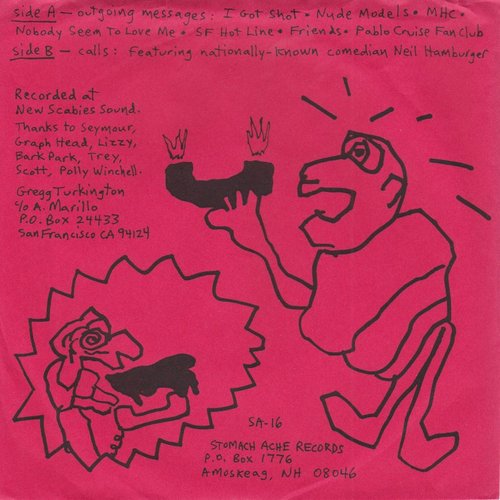 side A — outgoing messages: I Got Shot • Nude Models • MHC •
Nobody Seem To Love Me • SF Hot Line • Friends • Pablo Cruise Fan Club
side B — calls: featuring nationally-known comedian Neil Hamburger
Recorded at
New Scabies Sound.
Thanks to Seymour,
Graph Head, Lizzy,
Bark Park, Trey,
Scott, Polly Winchell.
Gregg Turkington
c/o A. Marillo
P.O. Box 24433
San Francisco CA 94124
SA-16
STOMACH ACHE RECORDS
P.O. Box 1776
Amoskeag, NH 08046